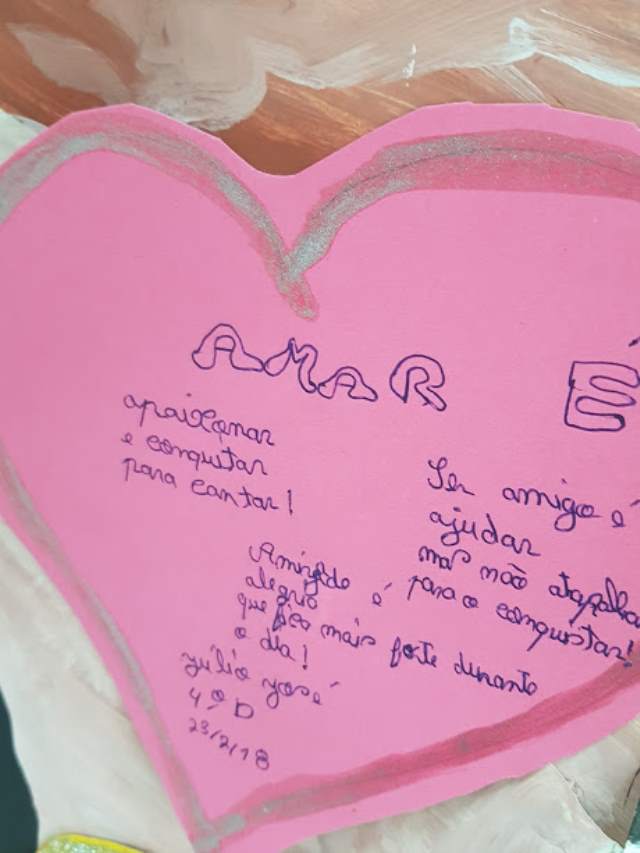 AMAR É
apaixonar
e conquistar
para cantar!
Ser amigo é
ajudar
mas não atrapalha
para o conquistar!
Amizade é
alegria
que fica mais forte durante
o dia!
Júlio José
4º D
23/2/18